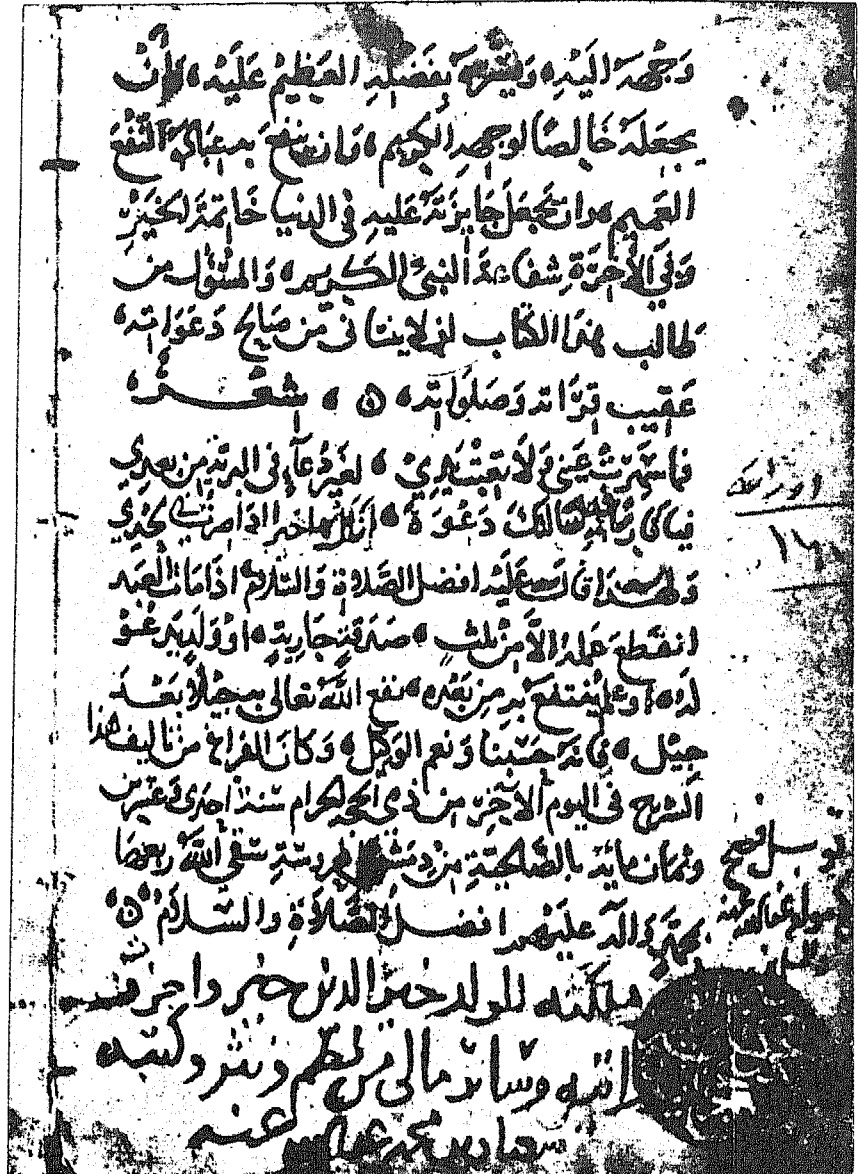 وَجْهِهَ اليَدِهِ وَيشرفه بِفَضْلِهِ العَظِيمْ عَلَيْهِ وَأَنْ
يجعَلَهُ خَالِصًا لوجهِهِ الكريم، وَان ينفعَ بهِ عِبَادَهُ النَّفْعَ
العميم، وان تجعَلَ جَايزَتَهُ عَليهِ فى الدنيا خَاتِمَةَ الخَيْرِ
وَفي الأخرَةِ شفاعةَ النبىّ الكريم، وَالمسْئول من
طالب هذا الكتاب ان لا ينسانى مِن صَالح دَعَوَاته،
عَقِيب قِرَاته وَصَلَوَاته، ه ، شعْر،
فما سَهِرَتْ عَيْنى وَلَا تعِبَتْ يَدِيْ ، لغير دُعَآءٍ فى البرية من بعدِي
فيا رَبَّنَا دَعْوَةً ، اذا صرت فى لحدِي
عَلَيْهِ افضل الصَّلاةِ وَالسَّلامْ اذَا مَات العَبْد
انقَطَعَ عَمَلهُ الاَّ مِنْ ثلثٍ، صَدَقةٍ جَارِيةٍ، اوْ وَلَدٍ يَدعُوْ
لَهُ، اوْ عِلمٍ يُنتَفَعُ بِهِ مِن بَعْدِه، نفع اللَّهُ تعالى به جيْلاً بَعْدَ
جيْل، فانه حَسْبنا وَنعم الوَكيل، وَكانَ الفراغ من تاليف هذا
الشرح فى اليوم الآخِرْ من ذى الحجه الحرام سَنةَ احدى وَعشرين
وثمان مايه بالصَّالحيَّةِ مِنْ دمَشْق المحروسَةِ سَقى اللَّهُ ربعهَا
بمحمدٍ وَالهِ عليهم افضل الصَّلاةِ والسَّلامْ ه
ملكته للولد خير الدين خضر واخوته
وساير مالى من نظم ونثر وكتبه
محمد عنه
اوراق
١٦١